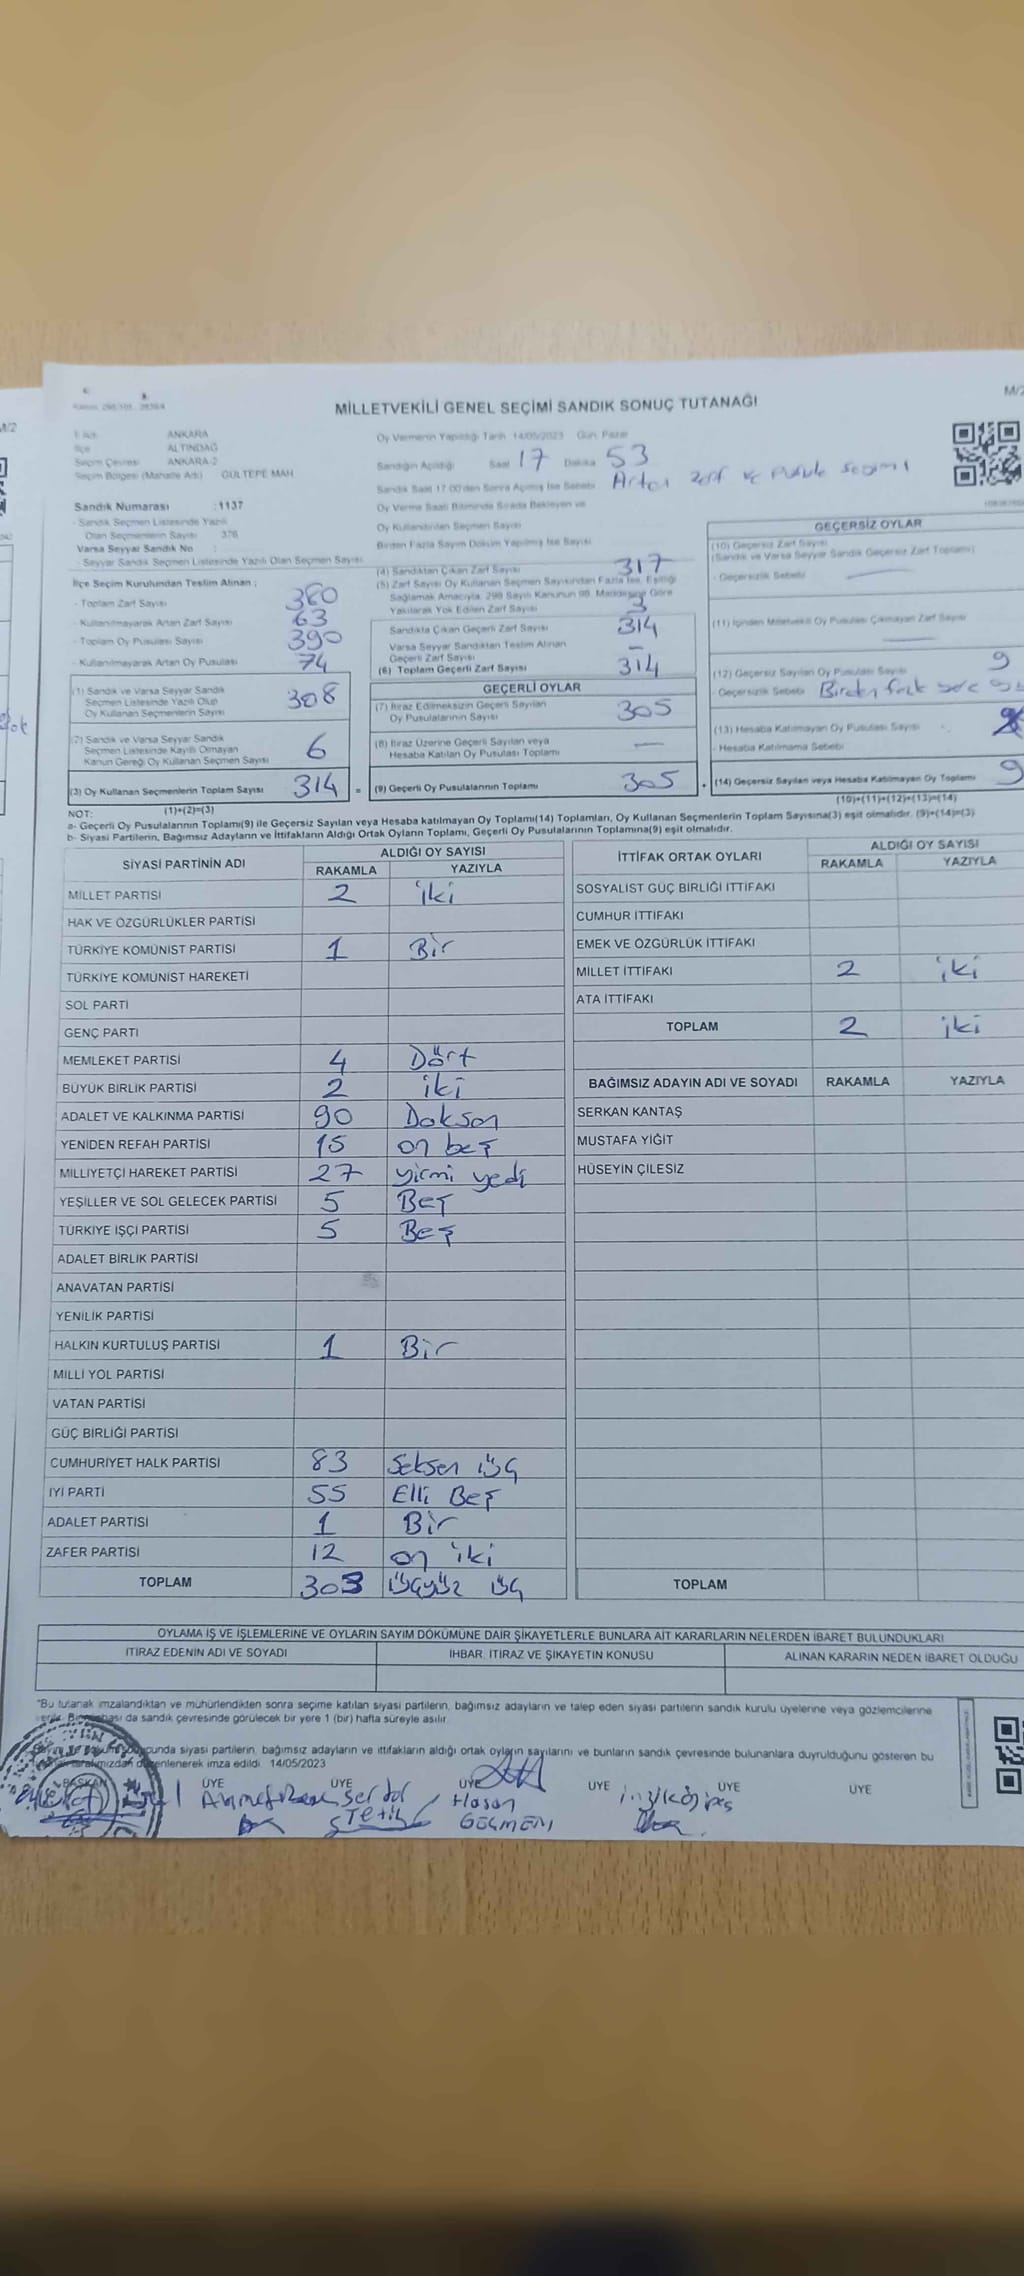 M/2
MİLLETVEKİLİ GENEL SEÇİMİ SANDIK SONUÇ TUTANAĞI
M/2
ANKARA
İlçe ALTINDAĞ
Seçim Çevresi ANKARA-2
Seçim Bölgesi (Mahalle Adı) GÜLTEPE MAH
Sandık Numarası :1137
- Sandık Seçmen Listesinde Yazılı
Olan Seçmenlerin Sayısı 376
Varsa Seyyar Sandık No
- Seyyar Sandık Seçmen Listesinde Yazılı Olan Seçmen Sayısı
İlçe Seçim Kurulundan Teslim Alınan ;
- Toplam Zarf Sayısı 380
- Kullanılmayarak Artan Zarf Sayısı 63
- Toplam Oy Pusulası Sayısı 390
- Kullanılmayarak Artan Oy Pusulası 74
(1) Sandık ve Varsa Seyyar Sandık
Seçmen Listesinde Yazılı Olup
Oy Kullanan Seçmenlerin Sayısı 308
(2) Sandık ve Varsa Seyyar Sandık
Seçmen Listesinde Kayıtlı Olmayan
Kanun Gereği Oy Kullanan Seçmen Sayısı 6
(3) Oy Kullanan Seçmenlerin Toplam Sayısı 314 =
(1)+(2)=(3)
Oy Vermenin Yapıldığı Tarih 14/05/2023 Gün Pazar
Sandığın Açıldığı Saat 17 Dakika 53
Sandık Saat 17.00'den Sonra Açılmış İse Sebebi Artan zarf ve pusula sayımı
Oy Verme Saati Bitiminde Sırada Bekleyen ve
Oy Kullandırılan Seçmen Sayısı
Birden Fazla Sayım Döküm Yapılmış İse Sayısı
(4) Sandıktan Çıkan Zarf Sayısı 317
(5) Zarf Sayısı Oy Kullanan Seçmen Sayısından Fazla İse, Eşitliği
Sağlamak Amacıyla, 298 Sayılı Kanunun 98. Maddesine Göre
Yakılarak Yok Edilen Zarf Sayısı 3
Sandıkta Çıkan Geçerli Zarf Sayısı 314
Varsa Seyyar Sandıktan Teslim Alınan
Geçerli Zarf Sayısı
(6) Toplam Geçerli Zarf Sayısı 314
GEÇERLİ OYLAR
(7) İtiraz Edilmeksizin Geçerli Sayılan
Oy Pusulalarının Sayısı 305
(8) İtiraz Üzerine Geçerli Sayılan veya
Hesaba Katılan Oy Pusulası Toplamı —
(9) Geçerli Oy Pusulalarının Toplamı 305 +
GEÇERSİZ OYLAR
(10) Geçersiz Zarf Sayısı
(Sandık ve Varsa Seyyar Sandık Geçersiz Zarf Toplamı)
- Geçersizlik Sebebi —
(11) İçinden Milletvekili Oy Pusulası Çıkmayan Zarf Sayısı —
(12) Geçersiz Sayılan Oy Pusulası Sayısı 9
- Geçersizlik Sebebi Birden fazla
(13) Hesaba Katılmayan Oy Pusulası Sayısı
- Hesaba Katılmama Sebebi
(14) Geçersiz Sayılan veya Hesaba Katılmayan Oy Toplamı 9
(10)+(11)+(12)+(13)=(14)
NOT:
a- Geçerli Oy Pusulalarının Toplamı(9) ile Geçersiz Sayılan veya Hesaba katılmayan Oy Toplamı(14) Toplamları, Oy Kullanan Seçmenlerin Toplam Sayısına(3) eşit olmalıdır. (9)+(14)=(3)
b- Siyasi Partilerin, Bağımsız Adayların ve İttifakların Aldığı Ortak Oyların Toplamı, Geçerli Oy Pusulalarının Toplamına(9) eşit olmalıdır.
SİYASİ PARTİNİN ADI ALDIĞI OY SAYISI
RAKAMLA YAZIYLA
MİLLET PARTİSİ 2 iki
HAK VE ÖZGÜRLÜKLER PARTİSİ
TÜRKİYE KOMÜNİST PARTİSİ 1 Bir
TÜRKİYE KOMÜNİST HAREKETİ
SOL PARTİ
GENÇ PARTİ
MEMLEKET PARTİSİ 4 Dört
BÜYÜK BİRLİK PARTİSİ 2 iki
ADALET VE KALKINMA PARTİSİ 90 Doksan
YENİDEN REFAH PARTİSİ 15 on beş
MİLLİYETÇİ HAREKET PARTİSİ 27 yirmi yedi
YEŞİLLER VE SOL GELECEK PARTİSİ 5 Beş
TÜRKİYE İŞÇİ PARTİSİ 5 Beş
ADALET BİRLİK PARTİSİ
ANAVATAN PARTİSİ
YENİLİK PARTİSİ
HALKIN KURTULUŞ PARTİSİ 1 Bir
MİLLİ YOL PARTİSİ
VATAN PARTİSİ
GÜÇ BİRLİĞİ PARTİSİ
CUMHURİYET HALK PARTİSİ 83 Seksen üç
İYİ PARTİ 55 Elli Beş
ADALET PARTİSİ 1 Bir
ZAFER PARTİSİ 12 on iki
TOPLAM 303 üçyüz üç
İTTİFAK ORTAK OYLARI ALDIĞI OY SAYISI
RAKAMLA YAZIYLA
SOSYALİST GÜÇ BİRLİĞİ İTTİFAKI
CUMHUR İTTİFAKI
EMEK VE ÖZGÜRLÜK İTTİFAKI
MİLLET İTTİFAKI 2 iki
ATA İTTİFAKI
TOPLAM 2 iki
BAĞIMSIZ ADAYIN ADI VE SOYADI RAKAMLA YAZIYLA
SERKAN KANTAŞ
MUSTAFA YİĞİT
HÜSEYİN ÇİLESİZ
TOPLAM
OYLAMA İŞ VE İŞLEMLERİNE VE OYLARIN SAYIM DÖKÜMÜNE DAİR ŞİKAYETLERLE BUNLARA AİT KARARLARIN NELERDEN İBARET BULUNDUKLARI
İTİRAZ EDENİN ADI VE SOYADI İHBAR, İTİRAZ VE ŞİKAYETİN KONUSU ALINAN KARARIN NEDEN İBARET OLDUĞU
"Bu tutanak imzalandıktan ve mühürlendikten sonra seçime katılan siyasi partilerin, bağımsız adayların ve talep eden siyasi partilerin sandık kurulu üyelerine veya gözlemcilerine
da sandık çevresinde görülecek bir yere 1 (bir) hafta süreyle asılır.
siyasi partilerin, bağımsız adayların ve ittifakların aldığı ortak oyların sayılarını ve bunların sandık çevresinde bulunanlara duyurulduğunu gösteren bu
imza edildi. 14/05/2023
BAŞKAN ÜYE ÜYE ÜYE ÜYE ÜYE ÜYE
Serdar
Hasan
GEÇMEN